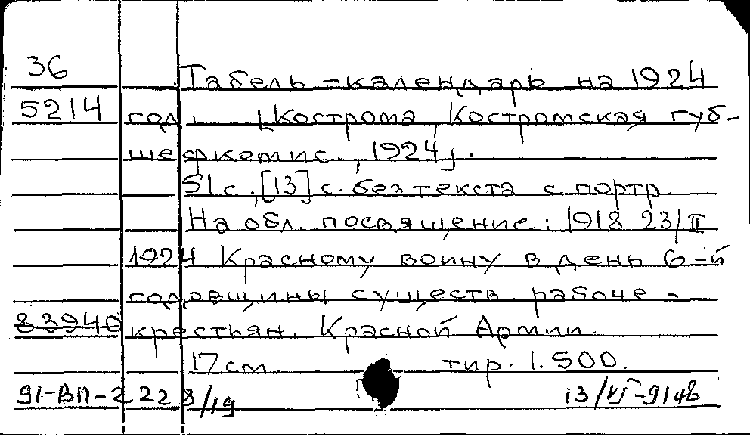 36 Табель-календарь на 1924
5214 год. [Кострома, Костромская губ-
шефкомис., 1924].
51 с., [13] с. без текста с портр.
На обл. посвящение: 1918 23/II
1924 Красному воину в день 6-й
годовщины существ. рабоче-
83940 крестьян. Красной Армии.
17 см тир. 1.500.
91-ВП-2 228/19